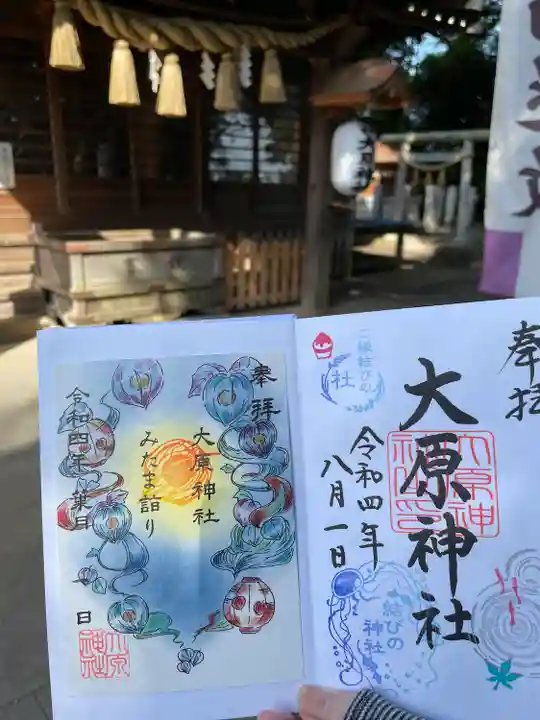 奉拝
大原神社
みたま詣り
令和四年 葉月
日
大原神社
奉拝
大原神社
令和四年
八月一日
ご縁結びの
社
結びの
神社